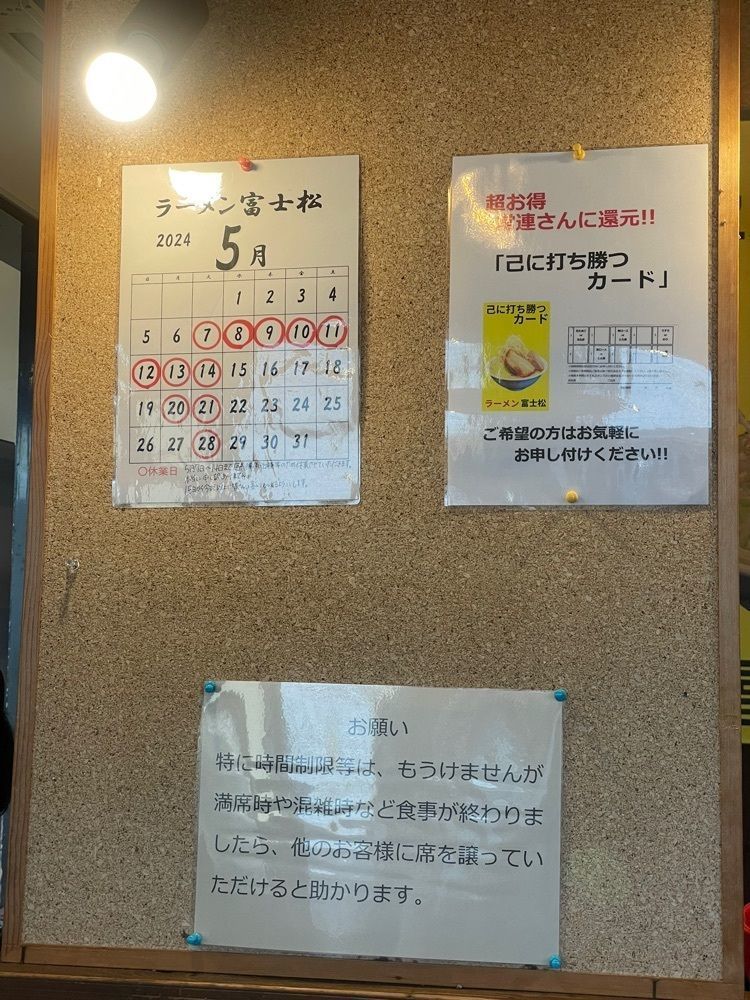 ラーメン富士松
2024 5月
日 月 火 水 木 金 土
1 2 3 4
5 6 7 8 9 10 11
12 13 14 15 16 17 18
19 20 21 22 23 24 25
26 27 28 29 30 31
○休業日
超お得
常連さんに還元!!
「己に打ち勝つ
カード」
己に打ち勝つ
カード
ラーメン富士松
ご希望の方はお気軽に
お申し付けください!!
お願い
特に時間制限等は、もうけませんが
満席時や混雑時など食事が終わりま
したら、他のお客様に席を譲ってい
ただけると助かります。